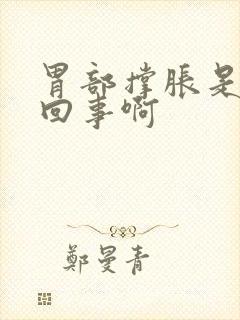 胃部撑胀是
回事啊
鄭曼青